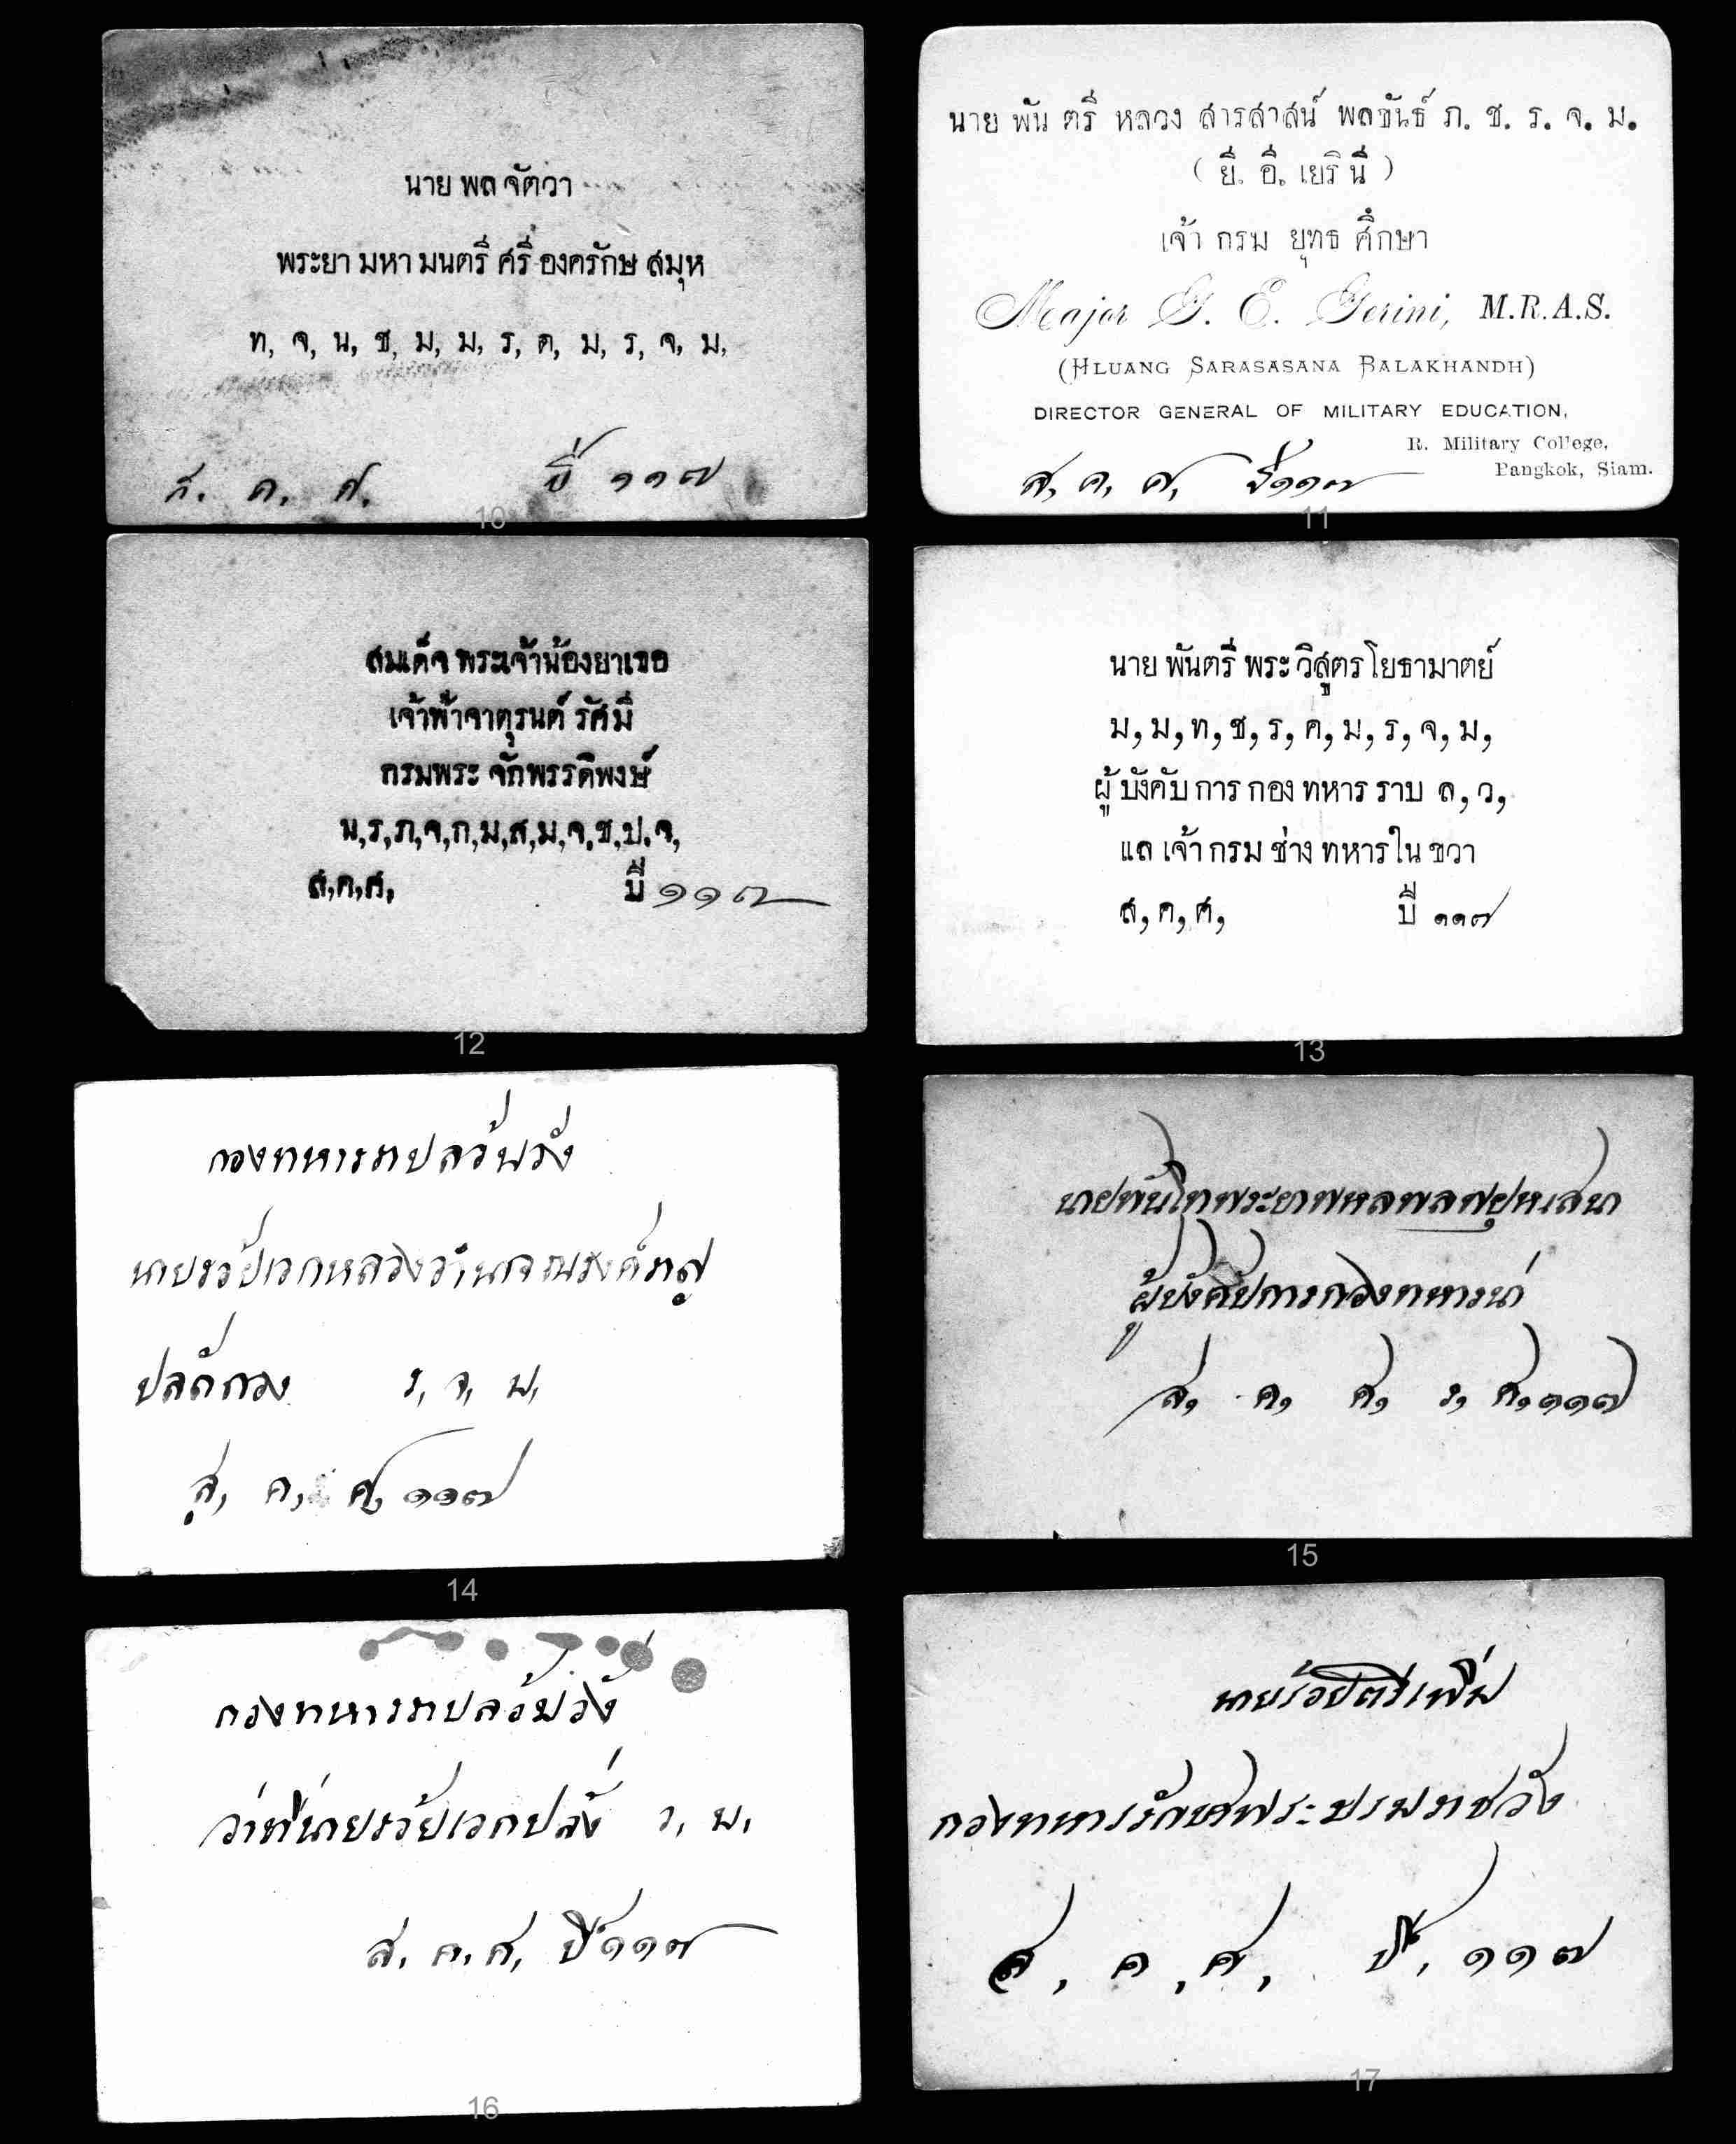 นาย พล จัตวา
พระยา มหา มนตรี ศรี องครักษ สมุห
ท, จ, น, ช, ม, ม, ร, ด, ม, ร, จ, ม,
ส. ค. ศ. ปี ๑๑๗
10
นาย พัน ตรี หลวง สารสาสน์ พลขันธ์ ภ. ช. ร. จ. ม.
( ยี. อี. เยรินี )
เจ้า กรม ยุทธ ศึกษา
Major G. E. Gerini, M.R.A.S.
(HLUANG SARASASANA BALAKHANDH)
DIRECTOR GENERAL OF MILITARY EDUCATION,
R. Military College,
Bangkok, Siam.
ส, ค, ศ, ปี ๑๑๗
11
สมเด็จ พระเจ้าน้องยาเธอ
เจ้าฟ้าจาตุรนต์ รัศมี
กรมพระ จักพรรดิพงษ์
น,ร,ภ,จ,ก,ม,ส,ม,จ,ช,ป,จ,
ส,ค,ศ, ปี ๑๑๗
12
นาย พันตรี พระ วิสูตร โยธามาตย์
ม, ม, ท, ช, ร, ค, ม, ร, จ, ม,
ผู้ บังคับ การ กอง ทหาร ราบ ล, ว,
แล เจ้า กรม ช่าง ทหาร ใน ขวา
ส, ค, ศ, ปี ๑๑๗
13
กองทหารราบล้อมวัง
นายร้อยเอกหลวงอำนาจณรงค์
ปลัดกอง ร, จ, ม,
ส, ค, ศ, ๑๑๗
14
นายพันโทพระยาพหลพลพยุหเสนา
ผู้บังคับการกองทหารน่า
ส, ค, ศ, ร, ศ, ๑๑๗
15
กองทหารราบล้อมวัง
ว่าที่นายร้อยเอกปลั่ง ว, ม,
ส. ค. ศ, ปี ๑๑๗
16
นายร้อยตรีเพิ่ม
กองทหารรักษาพระบรมราชวัง
ส, ค, ศ, ปี, ๑๑๗
17